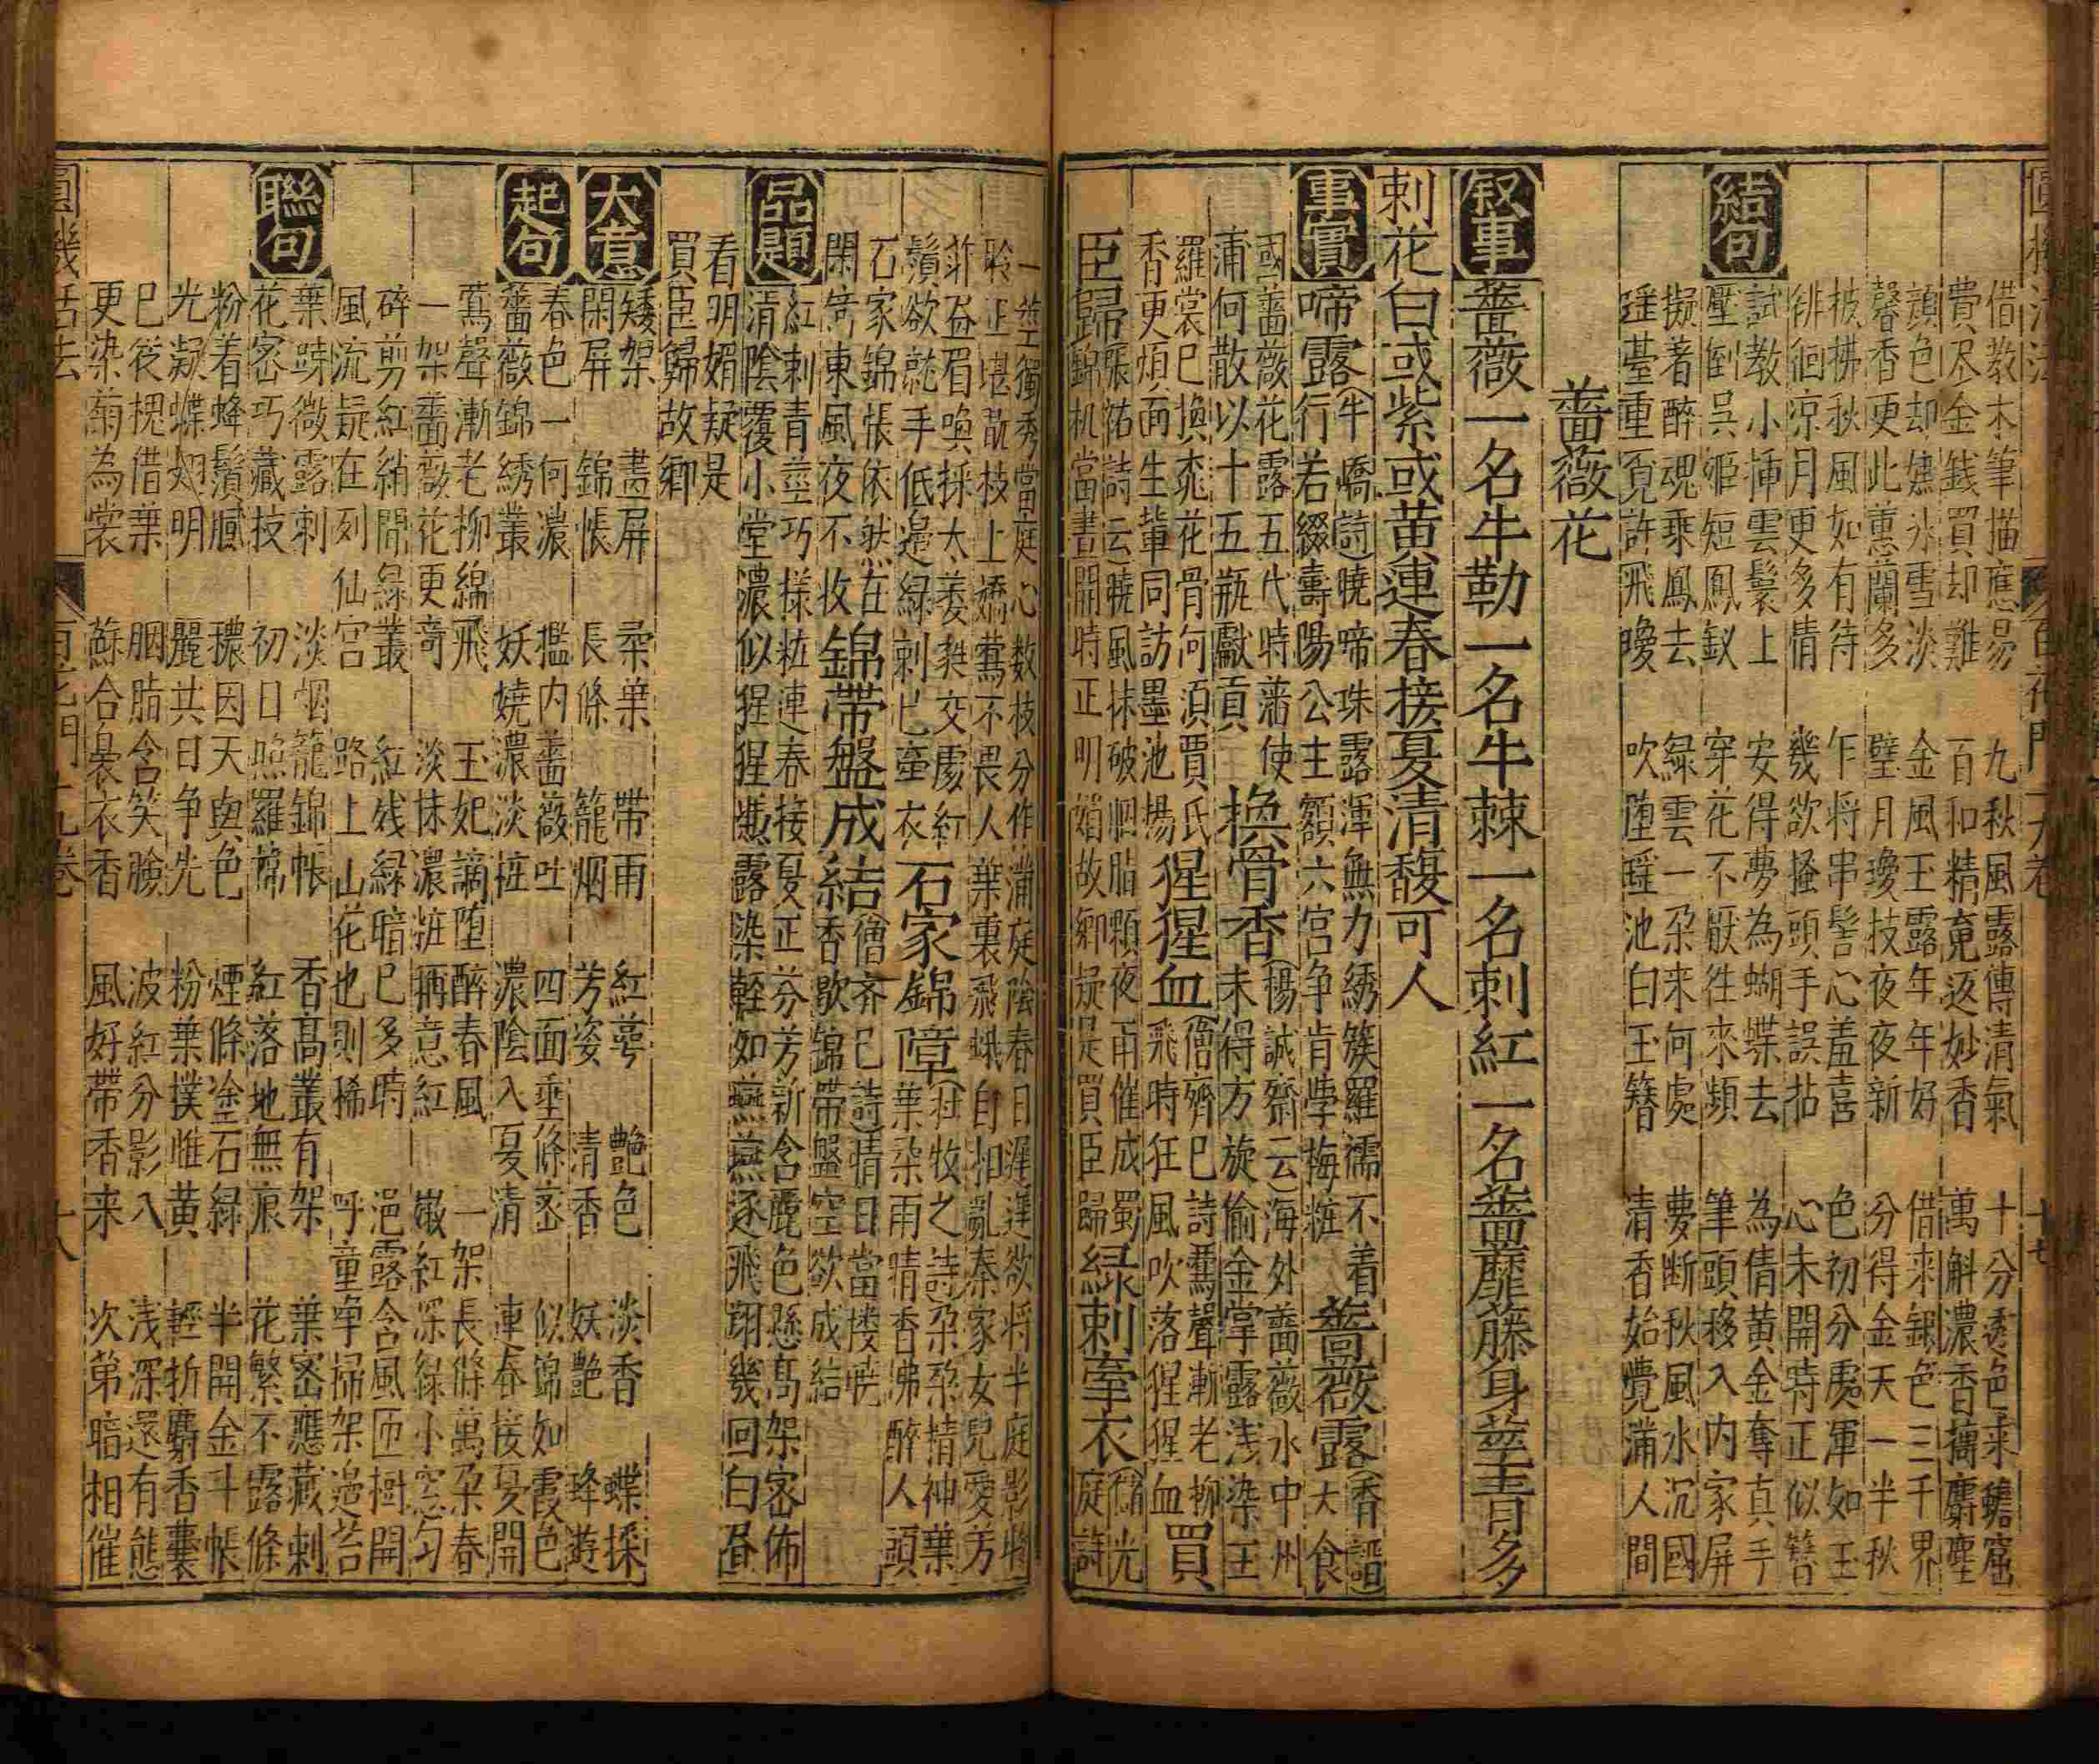 借教木筆描應易　九秋風露傳清氣　十分透色来蟾窟
費尽金錢買却難　百和精竟返妙香　萬斛濃香擣麝塵
顔色却嫌氷雪淡　金風玉露年年好　借来銀色三千界
馨香更比蕙蘭多　璧月瓊枝夜夜新　分得金天一半秋
披拂秋風如有待　乍将串髻心羞喜　色初分處渾如玉
徘徊凉月更多情　幾欲搔頭手誤拈　心未開時正似簪
結句　試教小揷雲鬟上　安得夢為蝴蝶去　為倩黄金奪真手
壓倒呉姬短鳳釵　穿花不厭徃來頻　筆頭移入内家屏
擬著醉魂乗鳳去　緑雲一朶来何處　夢断秋風水沉國
瑶臺重覔許飛瓊　吹堕瑶池白玉簪　清香始覺滿人間
薔薇花
叙事　薔薇一名牛勒一名牛棘一名刺紅一名薔蘼藤身莖青多
刺花白或紫或黄連春接夏清馥可人
事實　啼露（牛嶠詩）曉啼珠露渾無力綉簇羅襦不着
行若綴壽陽公主額六宫争肯學梅粧　薔薇露（香譜）大食
國薔薇花露五代時藩使
蒲何散以十五瓶獻貢　換骨香（楊誠齋云）海外薔薇水中州
未得方旋偷金掌露浅染玉
羅裳已換桼花骨何湏賈氏
香更煩面生軰同訪墨池揚　猩猩血（僧齊巳詩）鸎聲漸老柳
飛時狂風吹落猩猩血　買
臣歸（張祐詩云）曉風抹破胭脂顆夜雨催成蜀
錦机當書開時正明媚故鄉疑是買臣歸　緑刺牽衣（儲光
庭詩
一莖獨秀當庭心数枝分作滿庭陰春日遲遲欲将半庭影
聆正堪翫枝上嬌鶯不畏人葉裏飛蛾自相亂秦家女兒愛芳
莽益眉喚採太萎葉交處紅
鬚欲就手低邉緑刺已牽衣　石家錦障（杜牧之詩）朶朶精神葉
葉柔雨晴香佛醉人頭
石家錦張依然在
閑倚東風夜不收　錦帶盤成結（僧齐已詩）晴日當楼暁
香歇錦帶盤空欲成結
品題　紅刺青莖巧様粧連春接夏正芬芳新含麗色懸髙架密佈
清陰覆小堂濃似猩猩慿露染輕如燕燕逐飛翔幾回白昼
看明媚疑是
買臣歸故鄉
大意　矮架　畫屏　柔葉　帶雨　紅蕚　艶色　淡香　蝶採
閑屏　錦帳　長條　籠烟　芳姿　清香　妖艷　蜂遊
起句　春色一何濃　檻内薔薇吐　四面垂條密　似錦如霞色
薔薇錦綉叢　妖嬈濃淡粧　濃陰入夏清　連春接夏開
鶯聲漸老柳綿飛　玉妃謫堕醉春風　一架長條萬朶春
一架薔薇花更竒　淡抹濃粧稱意紅　嫩紅深緑小窓匀
碎剪紅綃間緑叢　紅残緑暗已多時　浥露含風匝樹開
風流疑在列仙宫　路上山花也則稀　呼童净掃架邉苔
聯句　葉踈微露刺　淡烟籠錦帳　香髙叢有架　葉密應藏刺
花密巧藏枝　初日照羅幃　紅落地無痕　花繁不露條
粉着蜂鬚膩　穠因天與色　煙條塗石緑　半開金斗帳
光凝蝶翅明　麗共日争先　粉葉撲雌黄　輕折麝香囊
已從槐借葉　胭脂含笑臉　波紅分影入　浅深還有態
更染菊為裳　蘇合裛衣香　風好帶香来　次第暗相催